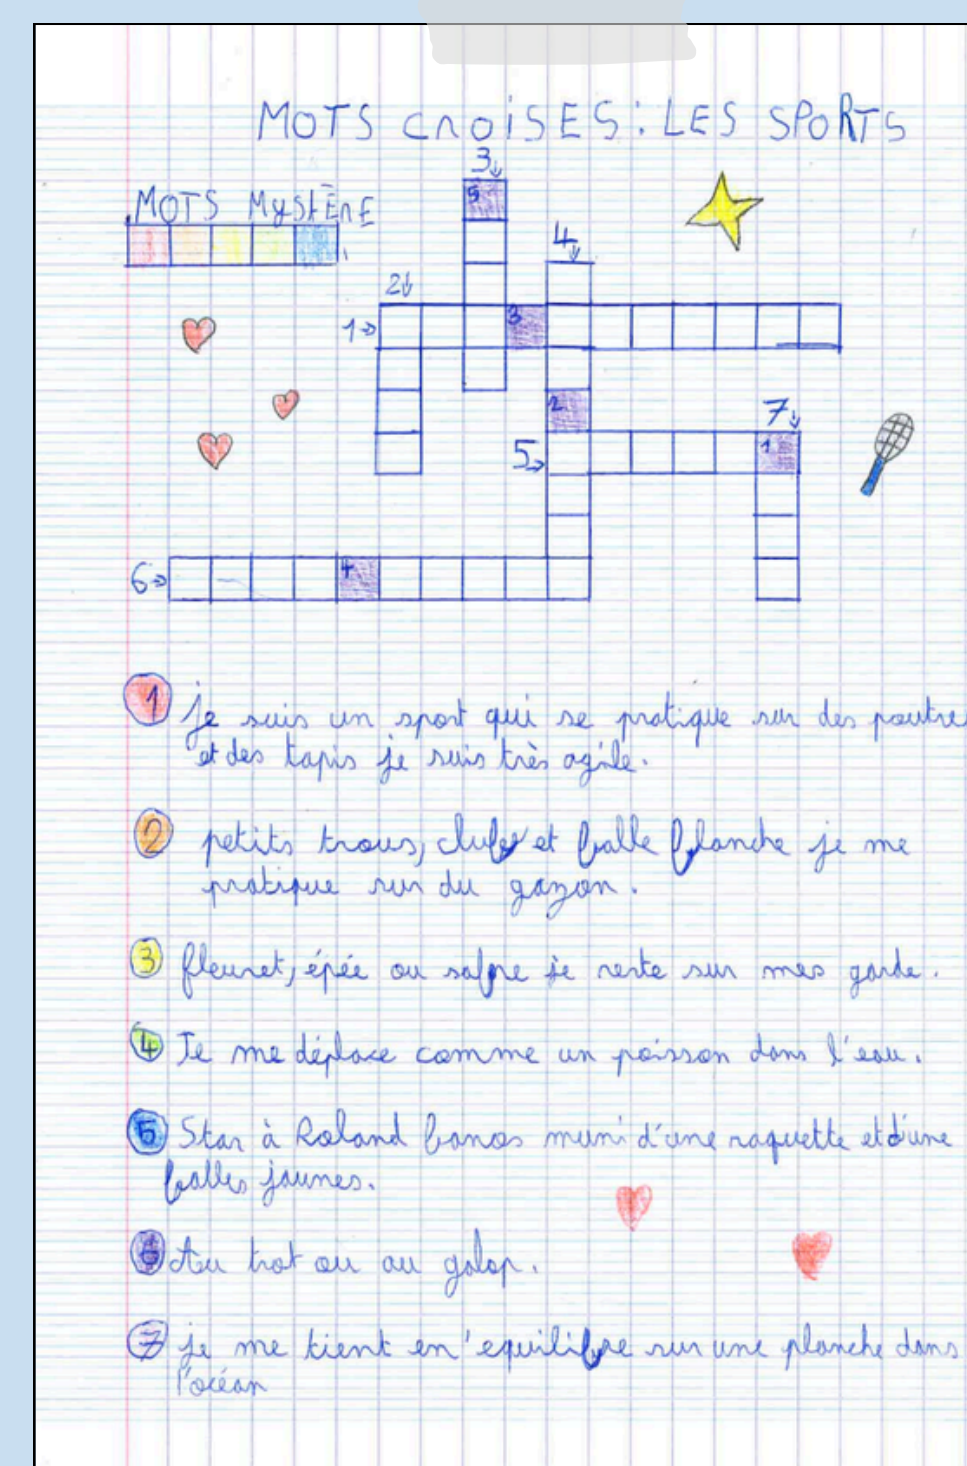 MOTS CROISES: LES SPORTS
3
MOTS MYSTÈRE
5
4
2
1
3
2
7
5
1
6
4
1 je suis un sport qui se pratique sur des poutres
et des tapis je suis très agile.
2 petits trous, clubs et balle blanche je me
pratique sur du gazon.
3 fleuret, épée ou sabre je reste sur mes garde.
4 Je me déplace comme un poisson dans l'eau.
5 Star à Roland muni d'une raquette et d'une
balles jaunes.
6 Au trot ou au galop.
7 je me tient en'equilibre sur une planche dans
l'océan